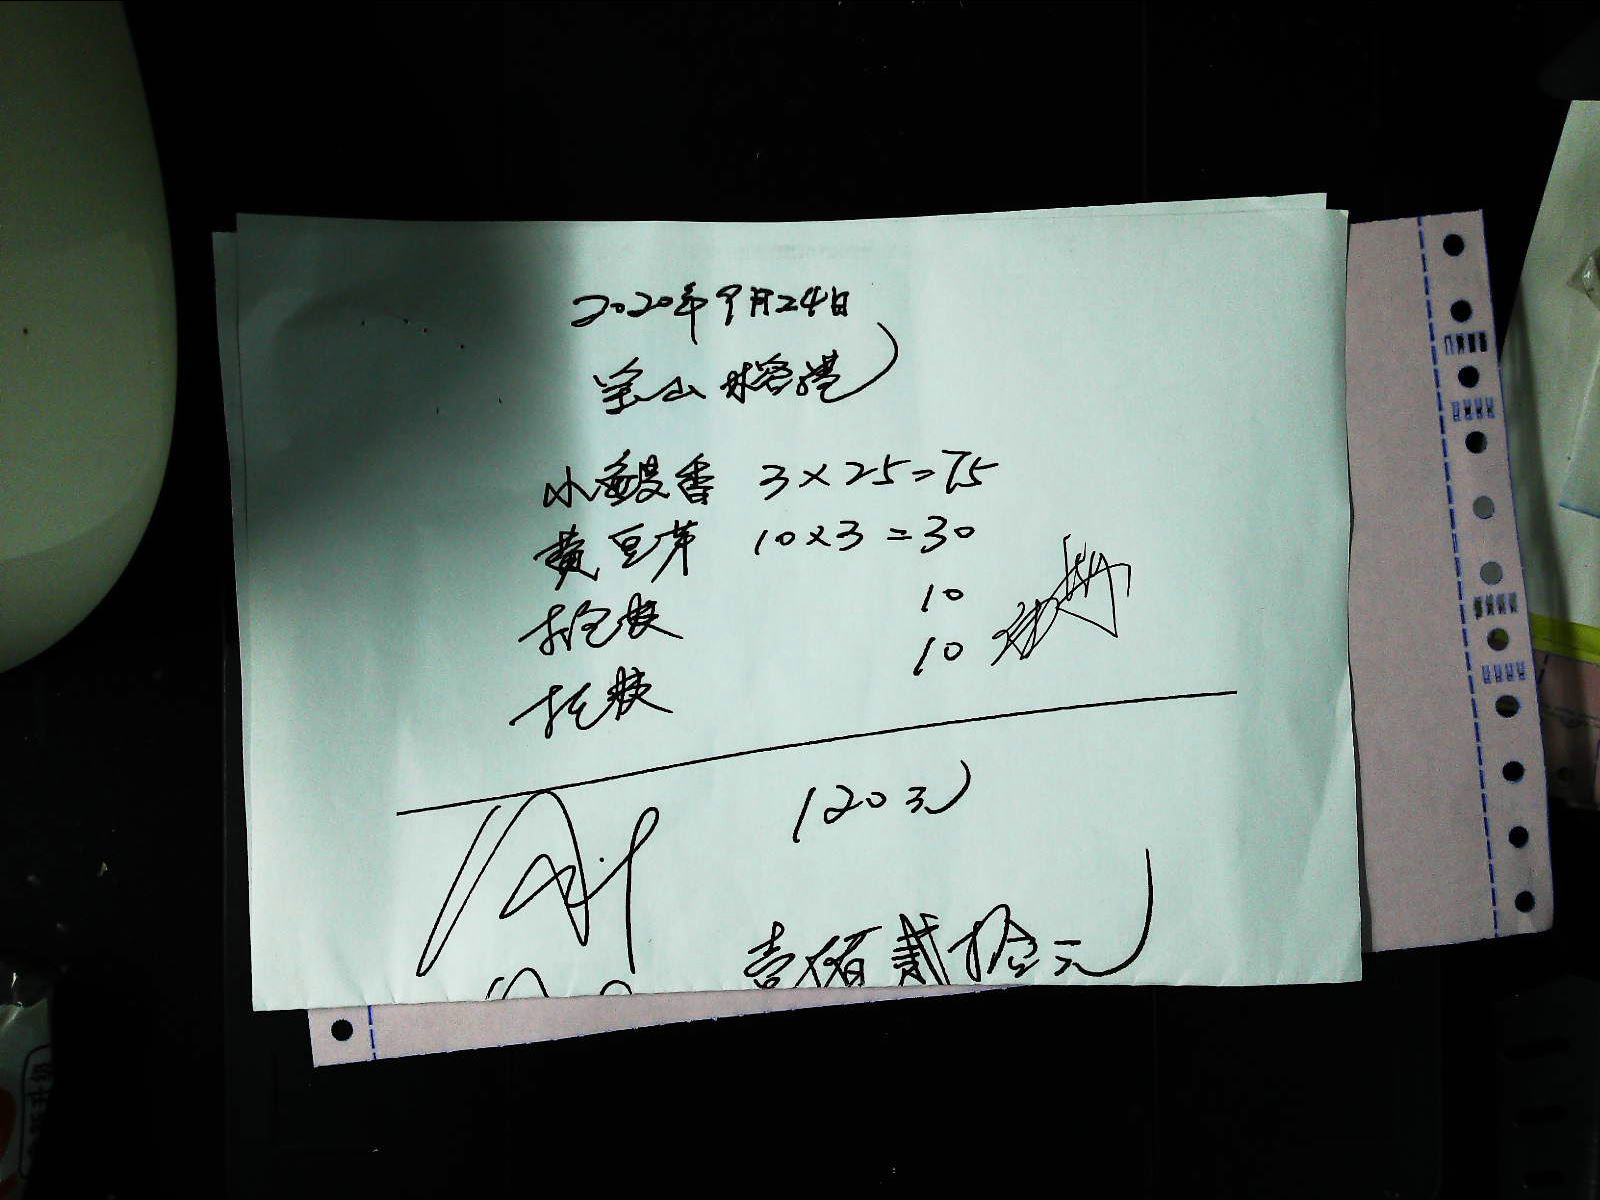 2020年9月24日
宝山榕港
小鳗香 3×25=75
黄豆芽 10×3=30
打包袋 10
打包袋 10
120元
壹佰贰拾元